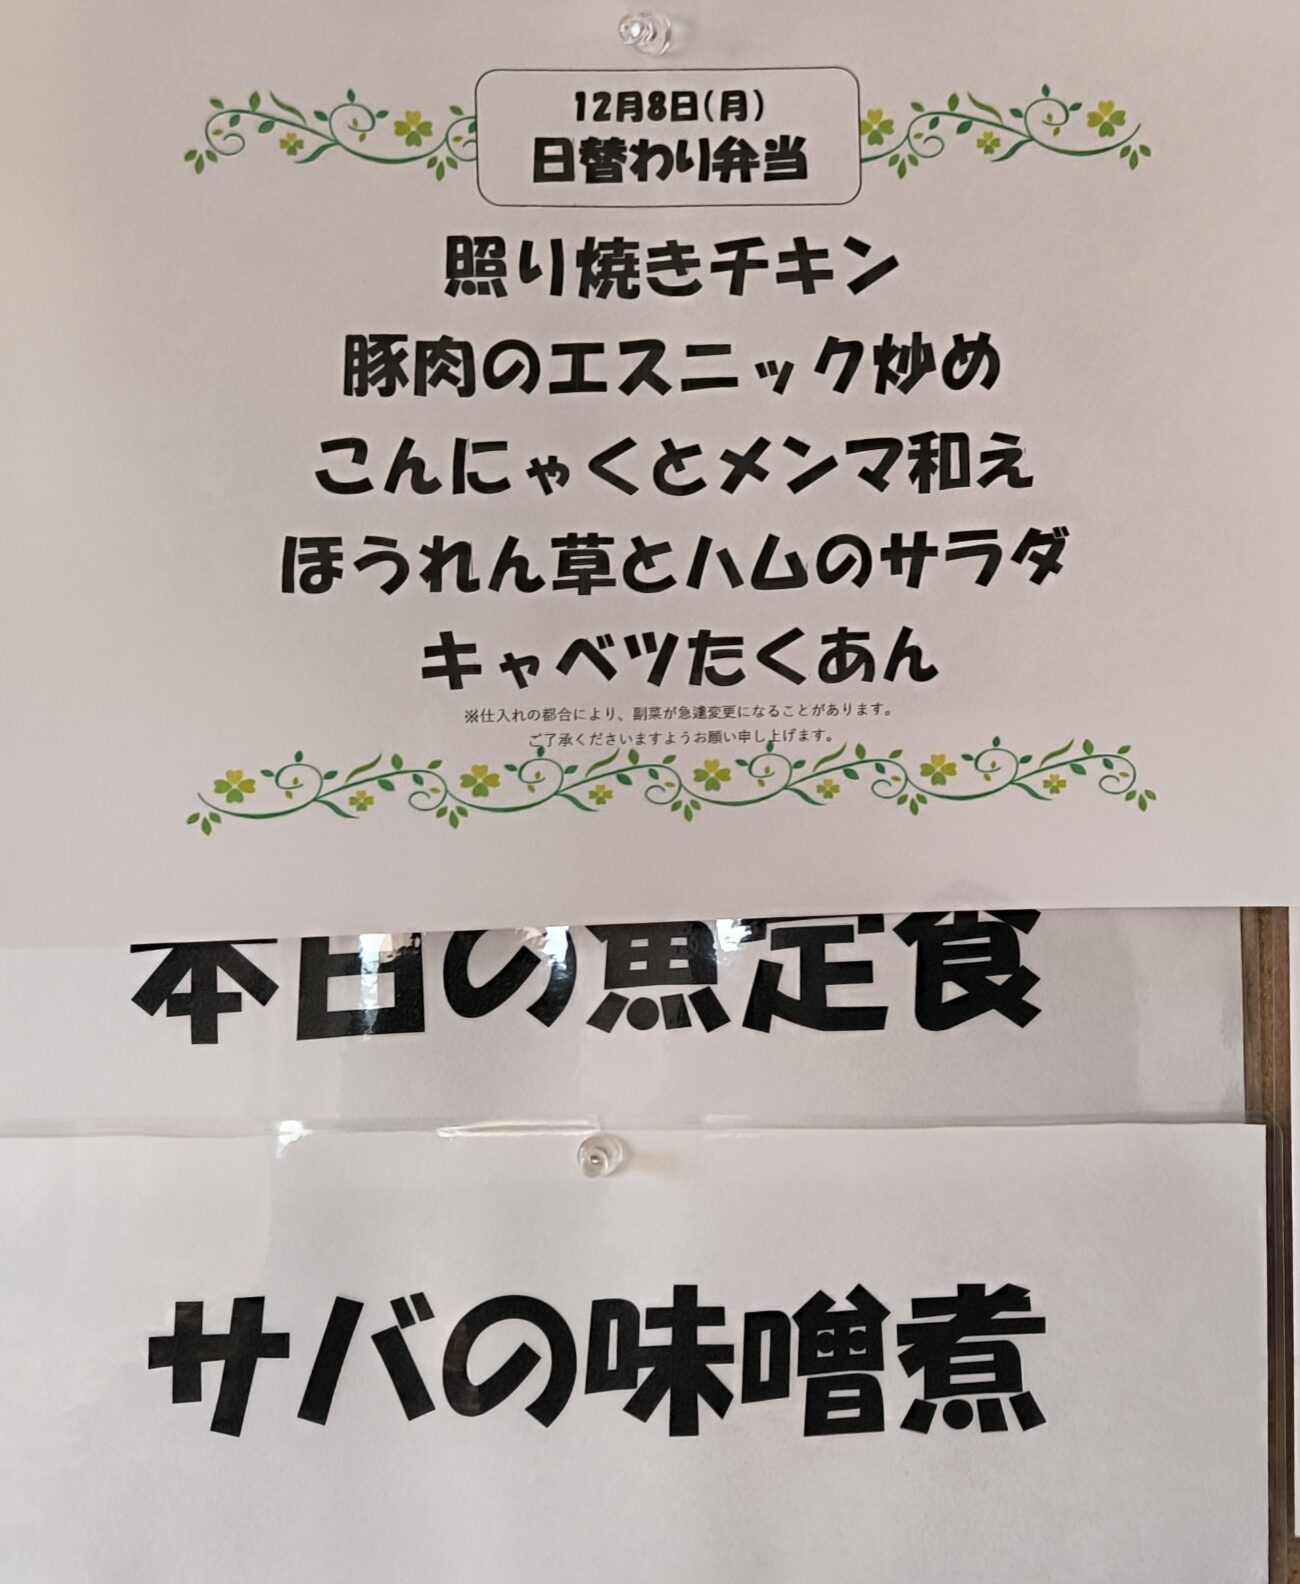 12月8日(月)
日替わり弁当
照り焼きチキン
豚肉のエスニック炒め
こんにゃくとメンマ和え
ほうれん草とハムのサラダ
キャベツたくあん
※仕入れの都合により、副菜が急遽変更になることがあります。
ご了承くださいますようお願い申し上げます。
本日の魚定食
サバの味噌煮